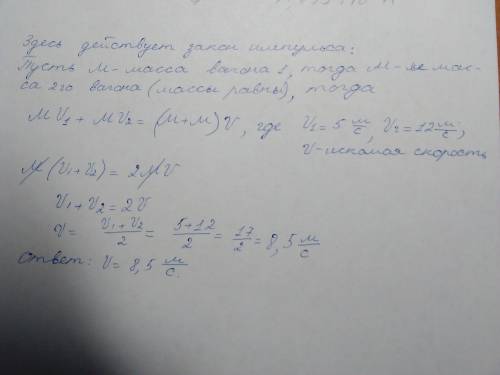 Здесь действует закон импульса:
Пусть M - масса вагона 1, тогда M - же мас-
са 2го вагона (массы равны), тогда
MV₁ + MV₂ = (M+M) V, где V₁ = 5 м/с, V₂ = 12 м/с,
V - искомая скорость
M(V₁+V₂) = 2MV
V₁ + V₂ = 2V
V = (V₁+V₂)/2 = (5+12)/2 = 17/2 = 8,5 м/с
Ответ: V = 8,5 м/с.